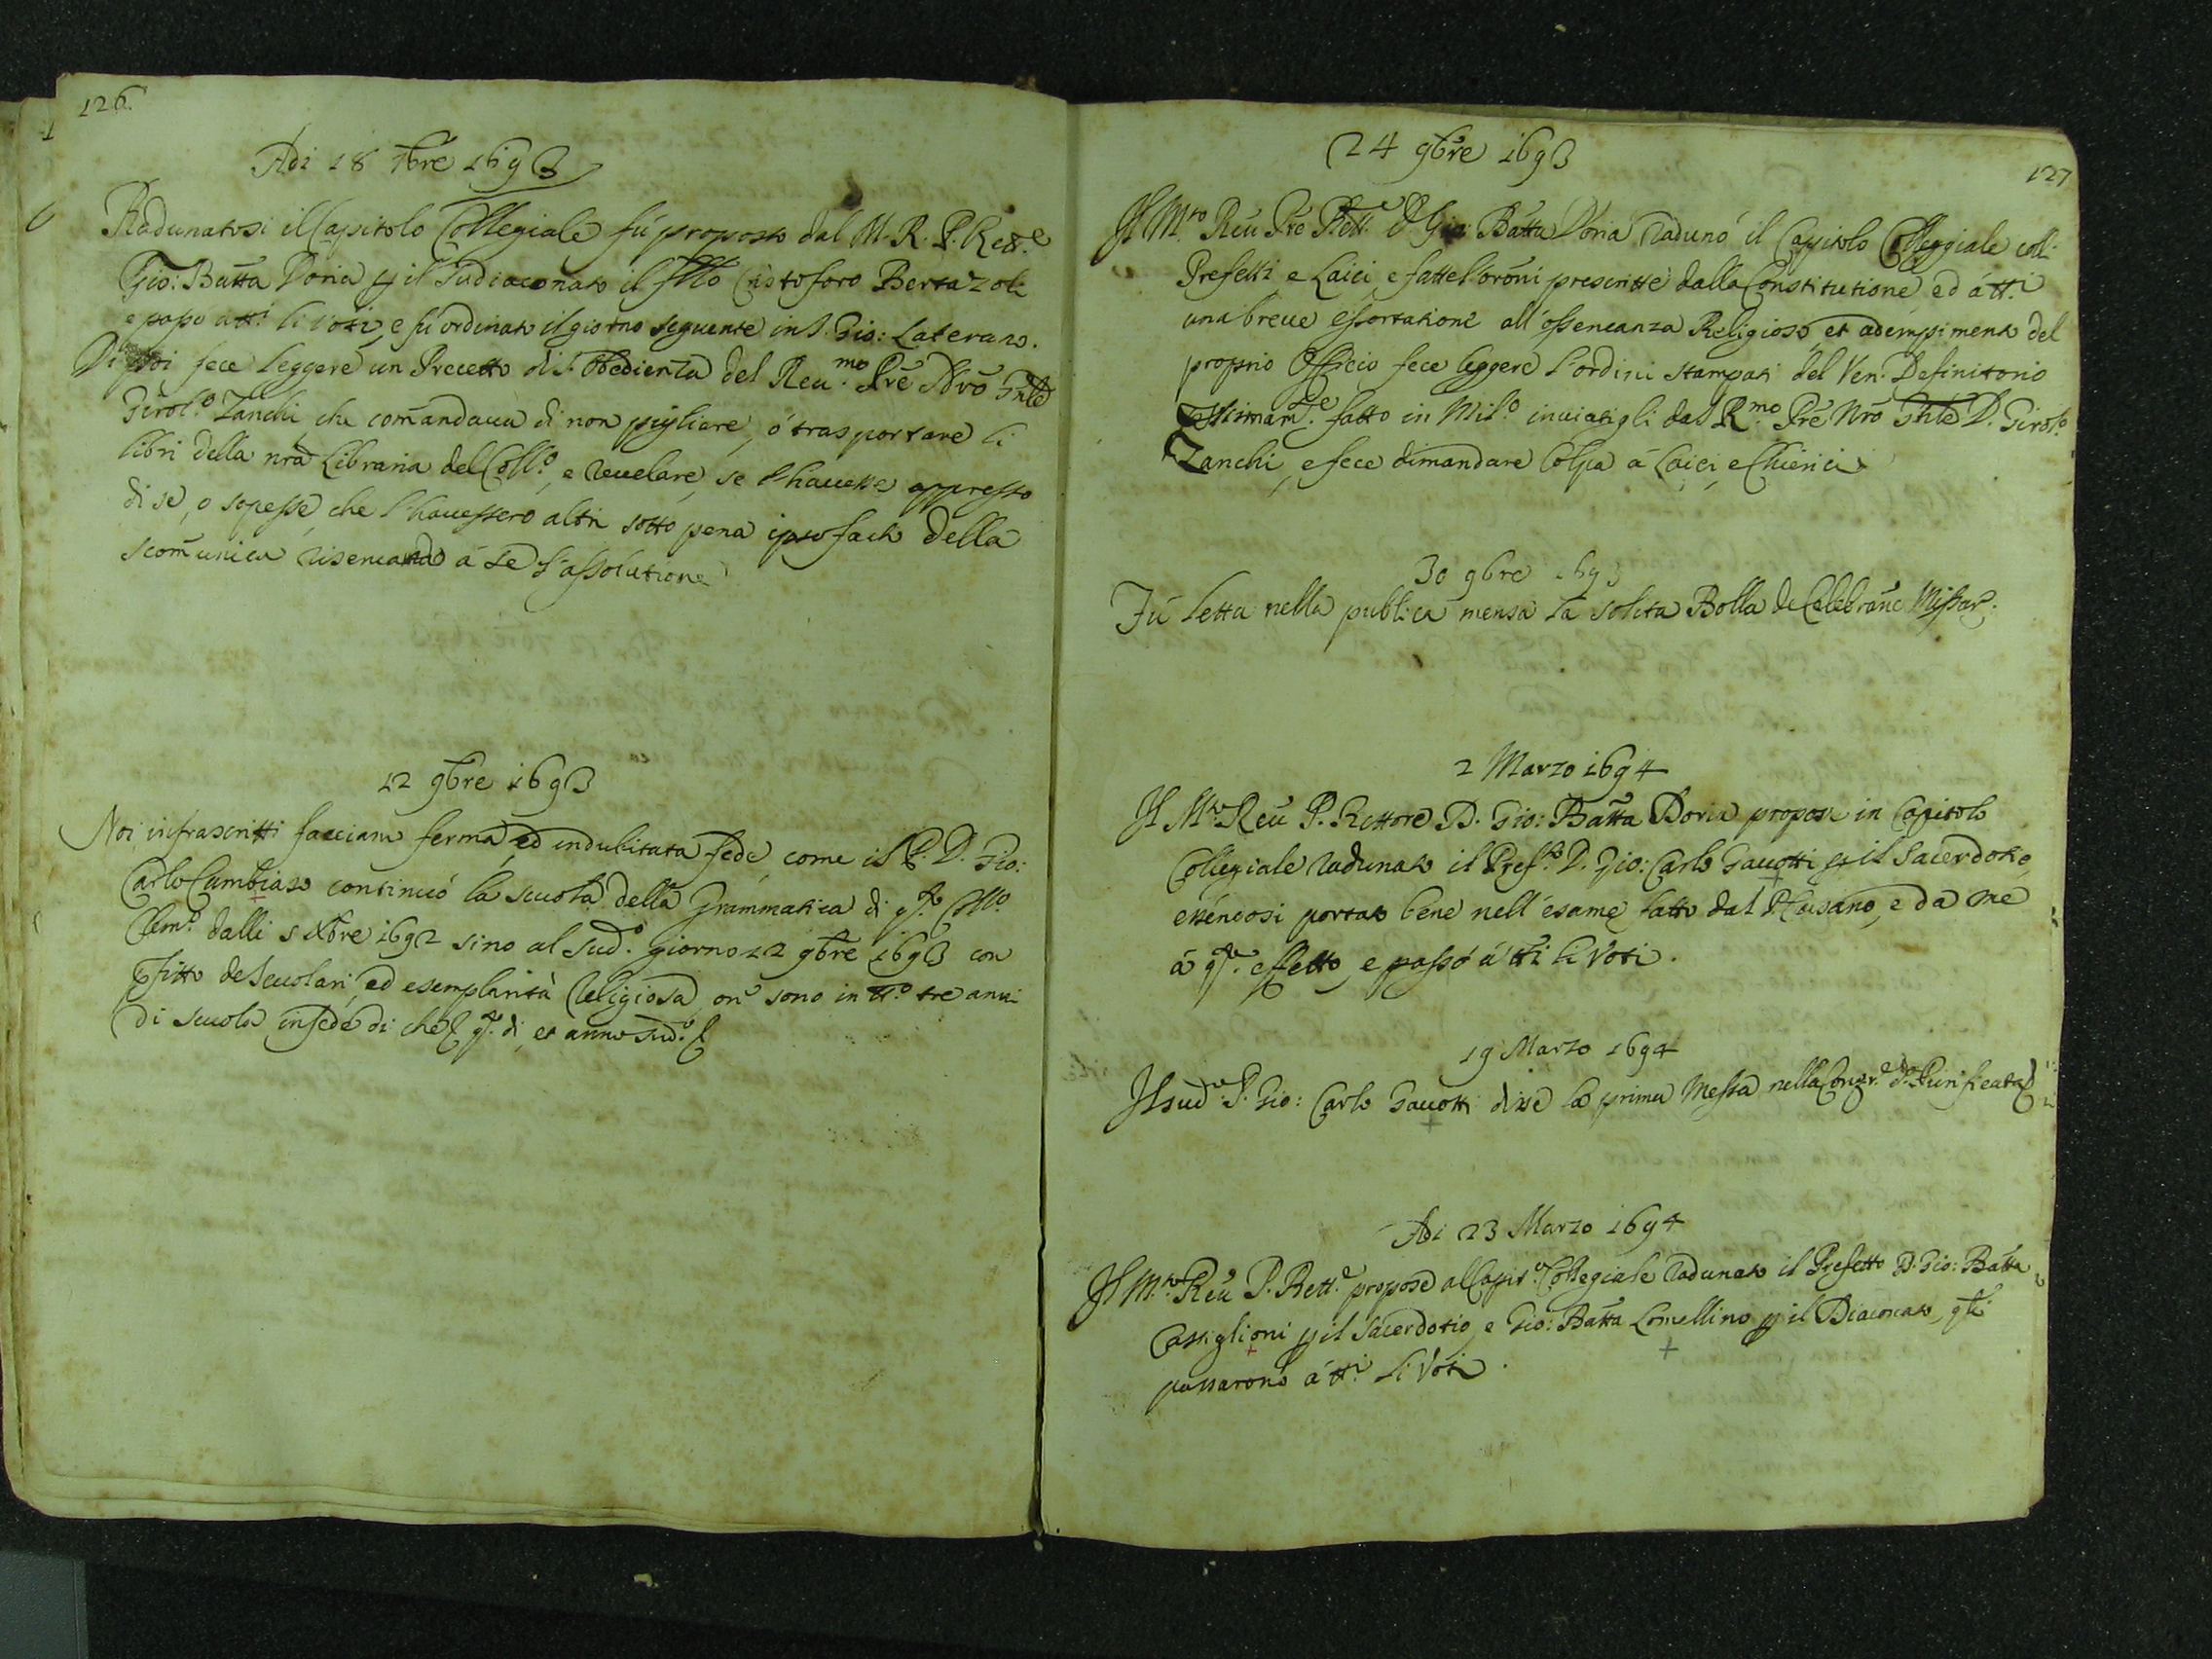 126.
Adi 18 7bre 1693
Radunatosi il Capitolo Collegiale fù proposto dal M. R. P. Ret.e
Gio: Batta Doria p il Sudiaconato il flło Cristoforo Bertazoli
e passò à tti li voti, e fù ordinato il giorno seguente in S. Gio: Laterano.
Di poi fece leggere un Precetto di S. Obedienza del Reu.mo Pre Nro Gnle
Girol.o Zanchi che comandaua di non pigliare, ò trasportare li
libri della nra Libraria del Coll.o, e reuelare, se l'hauesse appresso
di se, o sapesse, che l'hauessero altri sotto pena ipso facto della
scomunica riseruando à se l'assolutione
12 9bre 1693
Noi infrascritti facciamo ferma, ed indubitata fede, come il P. D. Gio:
Carlo Cambiaso continuò la scuola della Grammatica di q.to Coll.o
Clem.o dalli 5 Xbre 1692 sino al sud.o giorno 12 9bre 1693 con
pfitto de Scuolari, ed esemplarità Religiosa, on sono in tt.o tre anni
di scuola in fede di che q.to di, et anno sud.o
127
24 9bre 1693
Il M.to Reu Pre Rett.e D. Gio: Batta Doria radunò il Capitolo Collegiale coll:
Prefetti, e Laici, e fatte l'oroni prescritte dalla Constitutione ed à tt.i
una breue essortatione all'osseruanza Religiosa, et adempimento del
proprio Officio fece leggere l'ordini stampati del Ven. Definitorio
fatto in Mil.o inuiatigli dal R.mo Pre Nro Gnle D. Girol.o
Zanchi, e fece dimandare Colpa à Laici, e Chierici
30 9bre 1693
Fù letta nella publica mensa la solita Bolla de Celebrane Missar.
2 Marzo 1694
Il M.to Reu P. Rettore D. Gio: Batta Doria propose in Capitolo
Collegiale radunato il Pref.to D. Gio: Carlo Gauotti p il Sacerdotio,
essendosi portato bene nell'esame fatto dal P. Cusano, e da me
à q.to effetto, e passò à tti li Voti.
19 Marzo 1694
Il sud.o P. Gio: Carlo Gauotti disse la prima Messa nella Congr.e d.a Purificata
Adi 23 Marzo 1694
Il M.to Reu P. Rett.e propose al Capit.o Collegiale radunato il Prefetto D. Gio: Batta
Castiglioni p il Sacerdotio, e Gio: Batta Lomellino p il Diaconato, qli
passarono à tt.i li Voti.